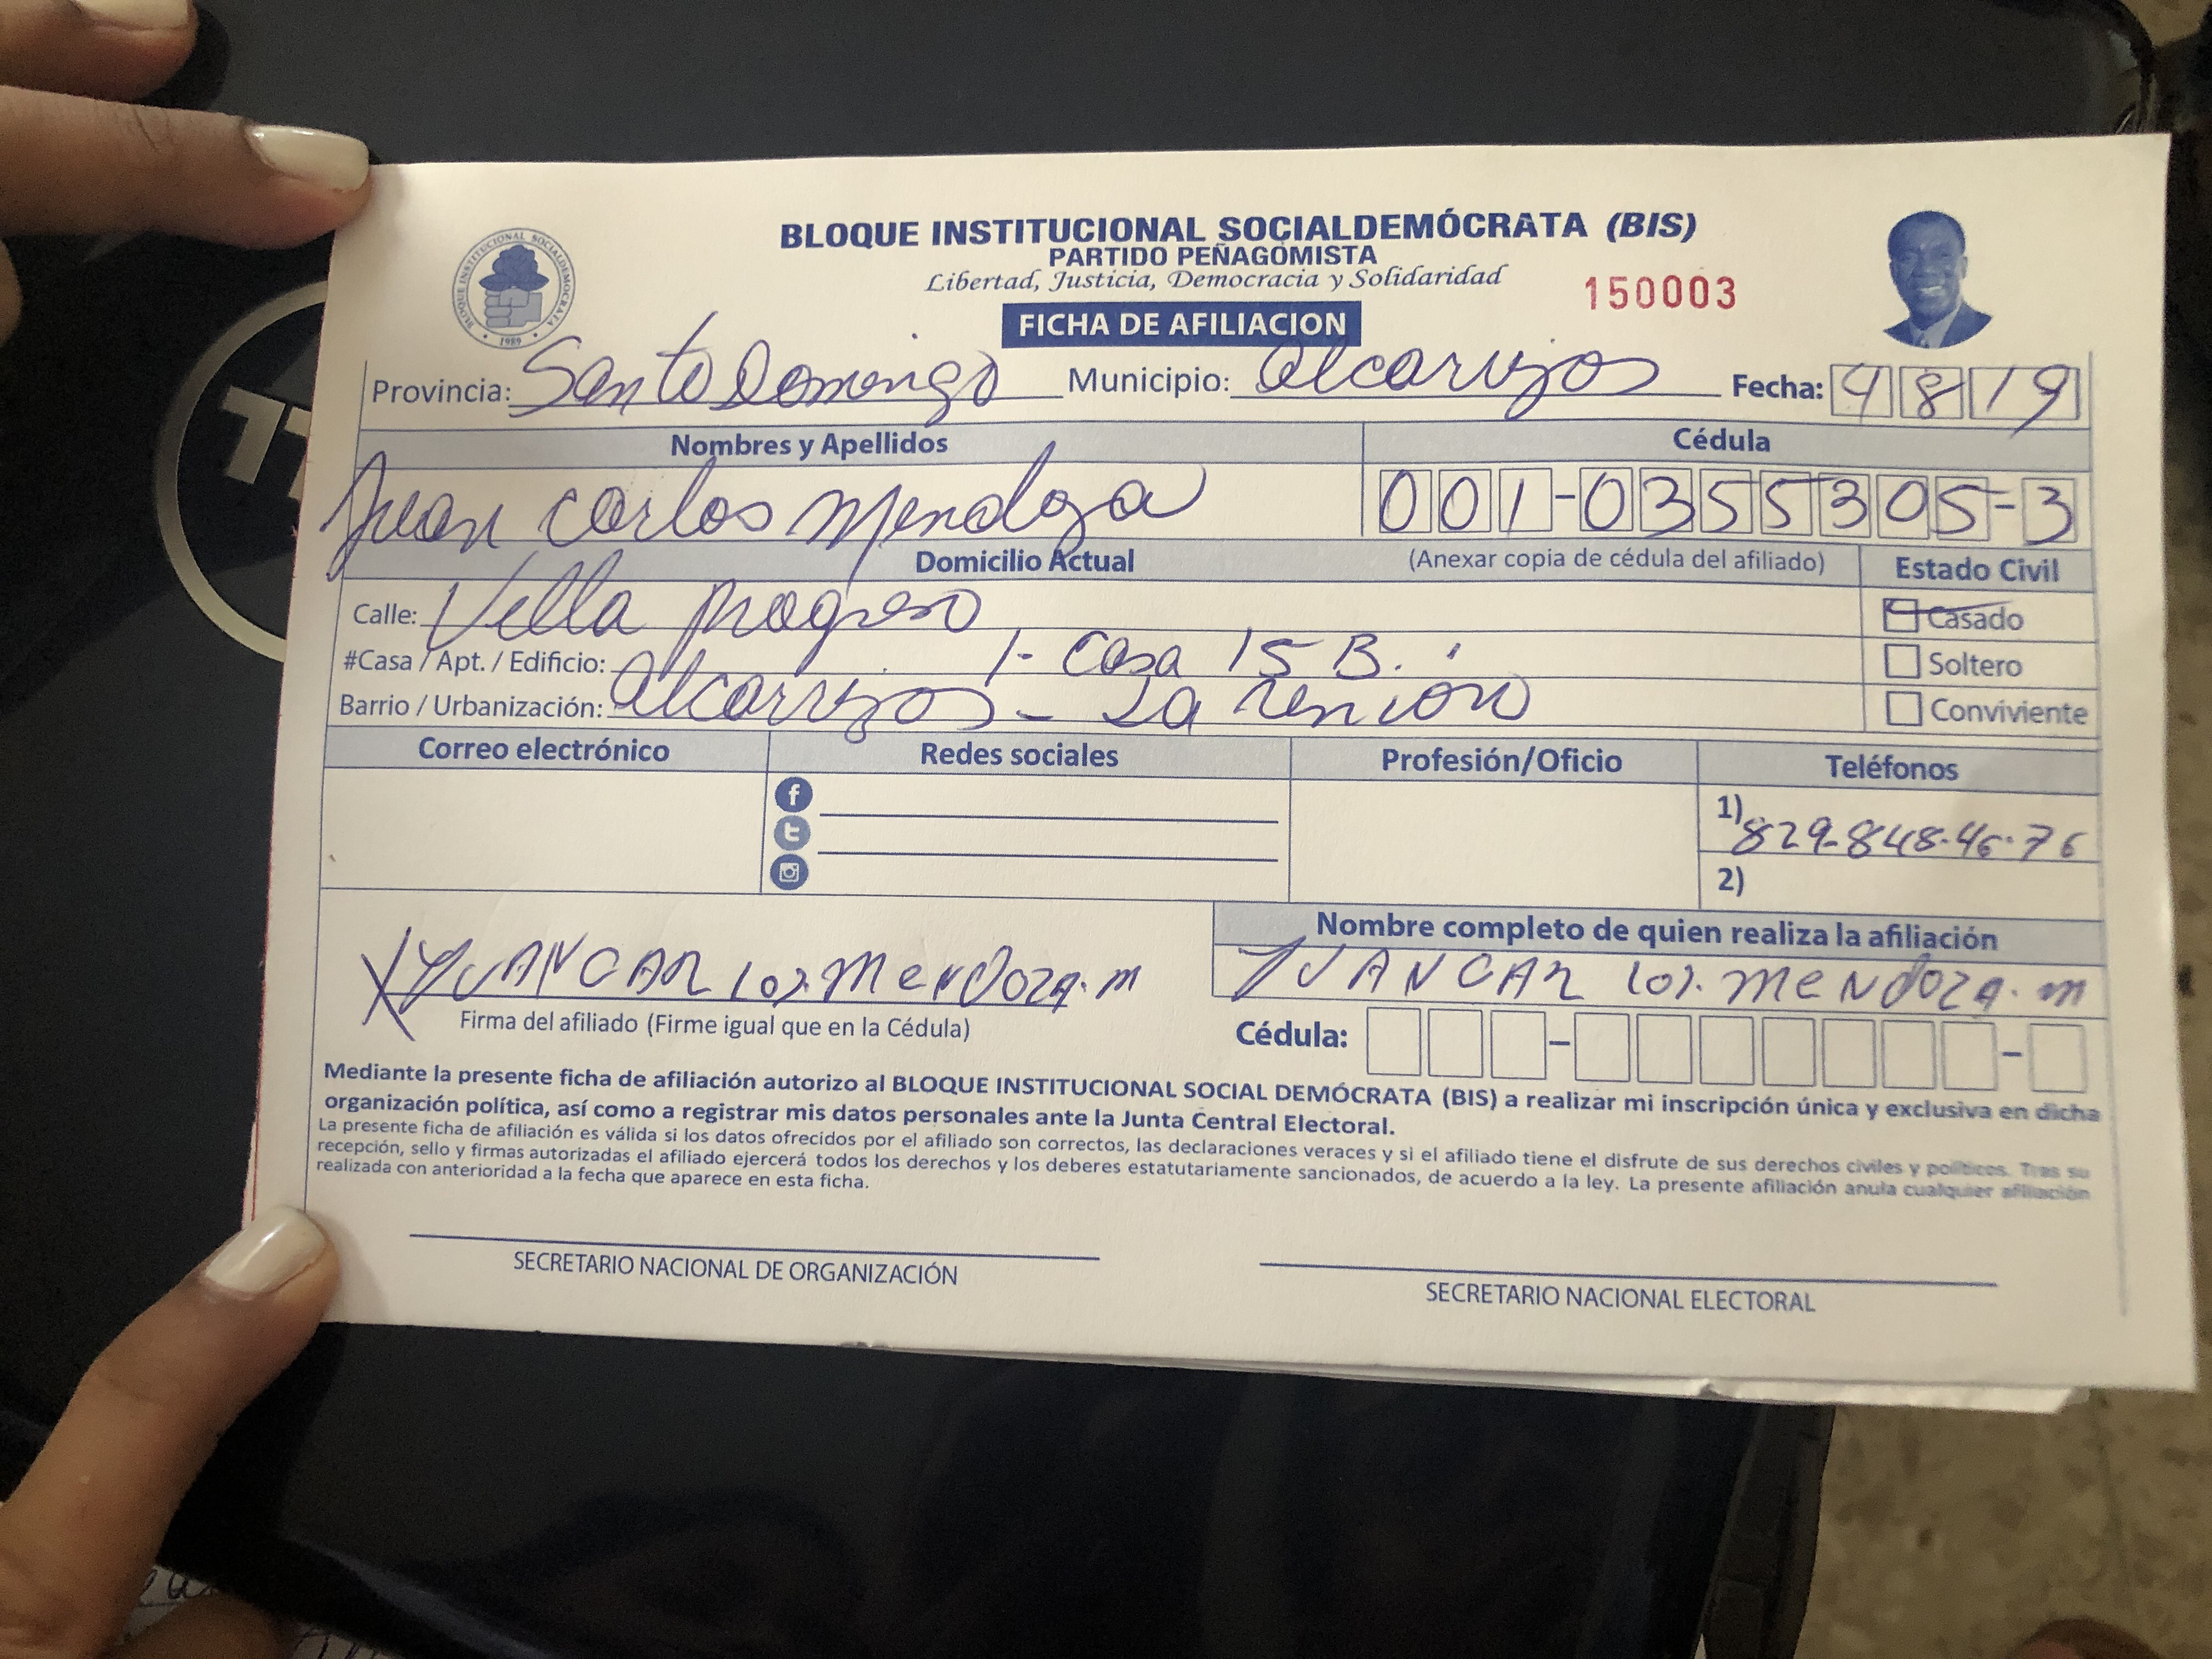 BLOQUE INSTITUCIONAL SOCIALDEMÓCRATA (BIS)
PARTIDO PEÑAGOMISTA
Libertad, Justicia, Democracia y Solidaridad
150003
BLOQUE INSTITUCIONAL SOCIALDEMOCRATA
1989
FICHA DE AFILIACION
Provincia: Santo Domingo Municipio: alcarrizos Fecha: 4 8 19
Nombres y Apellidos Cédula
Juan Carlos Mendoza 001-0355305-3
Domicilio Actual (Anexar copia de cédula del afiliado) Estado Civil
Calle: Villa progreso Casado
#Casa / Apt. / Edificio: 1- Casa 15 B. Soltero
Barrio / Urbanización: alcarrizos - La Conviviente
Correo electrónico Redes sociales Profesión/Oficio Teléfonos
1) 829-848-46-76
2)
Nombre completo de quien realiza la afiliación
X JUAN CARlos. MeNDOZA. M JUAN CARlos. MeNDOZA. M
Firma del afiliado (Firme igual que en la Cédula) Cédula:
Mediante la presente ficha de afiliación autorizo al BLOQUE INSTITUCIONAL SOCIAL DEMÓCRATA (BIS) a realizar mi inscripción única y exclusiva en dicha
organización política, así como a registrar mis datos personales ante la Junta Central Electoral.
La presente ficha de afiliación es válida si los datos ofrecidos por el afiliado son correctos, las declaraciones veraces y si el afiliado tiene el disfrute de sus derechos civiles y políticos. Tras su
recepción, sello y firmas autorizadas el afiliado ejercerá todos los derechos y los deberes estatutariamente sancionados, de acuerdo a la ley. La presente afiliación anula cualquier afiliación
realizada con anterioridad a la fecha que aparece en esta ficha.
SECRETARIO NACIONAL DE ORGANIZACIÓN
SECRETARIO NACIONAL ELECTORAL